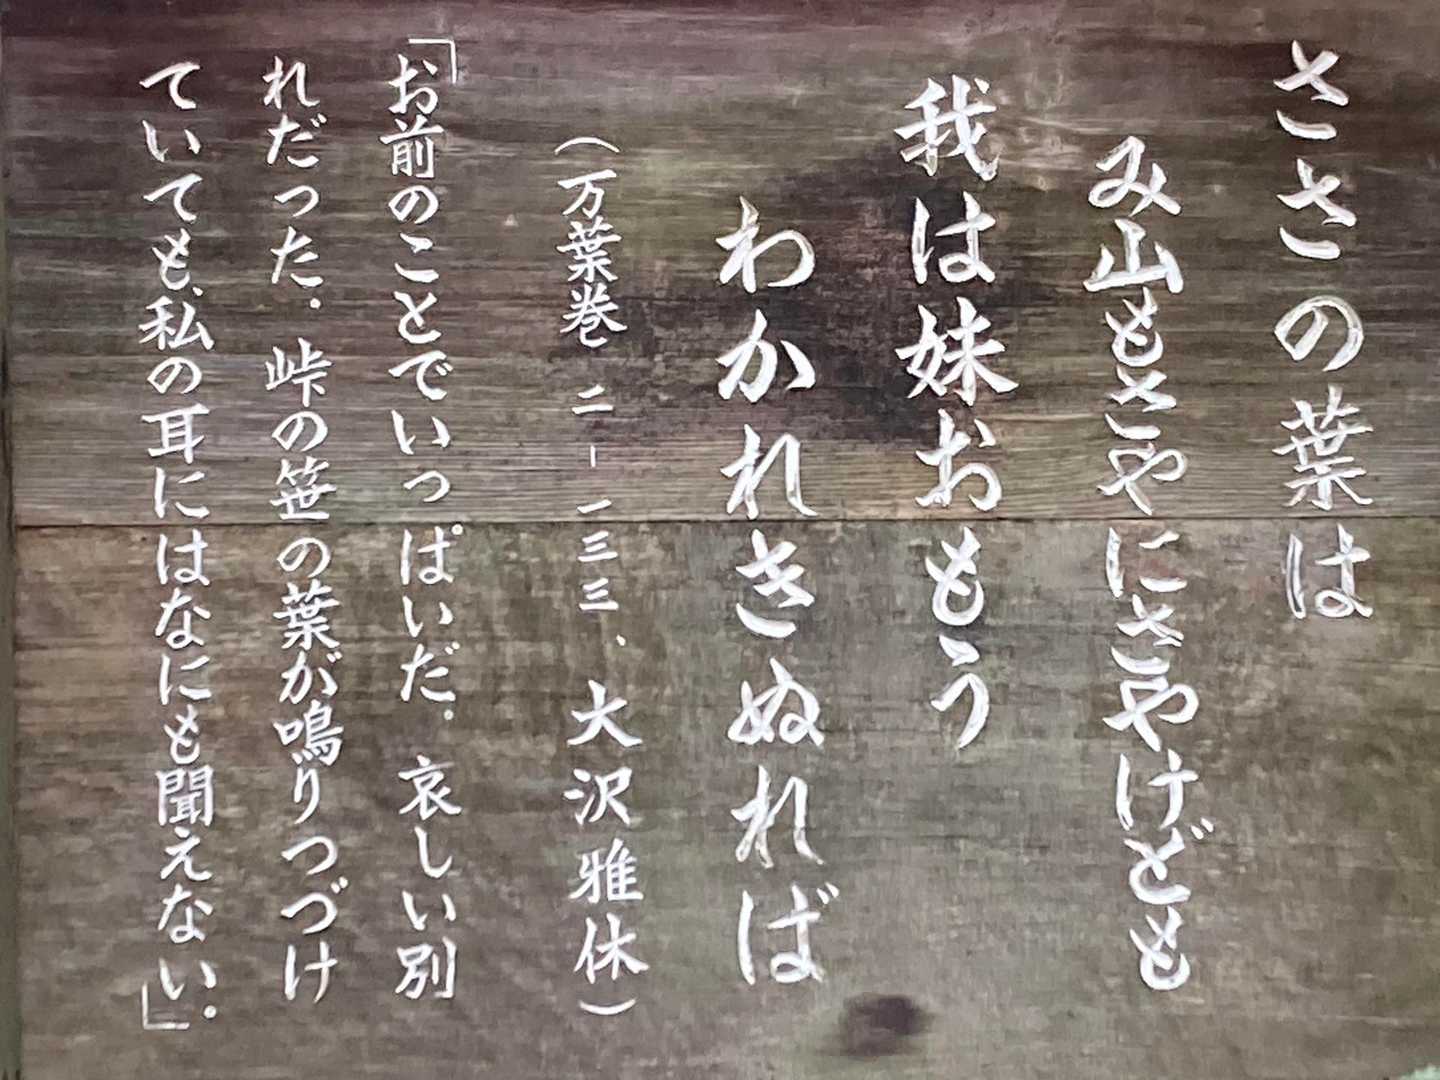 ささの葉は
み山もさやにさやけども
我は妹おもう
わかれきぬれば
(万葉巻 二-一三三、大沢雅休)
「お前のことでいっぱいだ。哀しい別
れだった。峠の笹の葉が鳴りつづけ
ていても、私の耳にはなにも聞えない。」